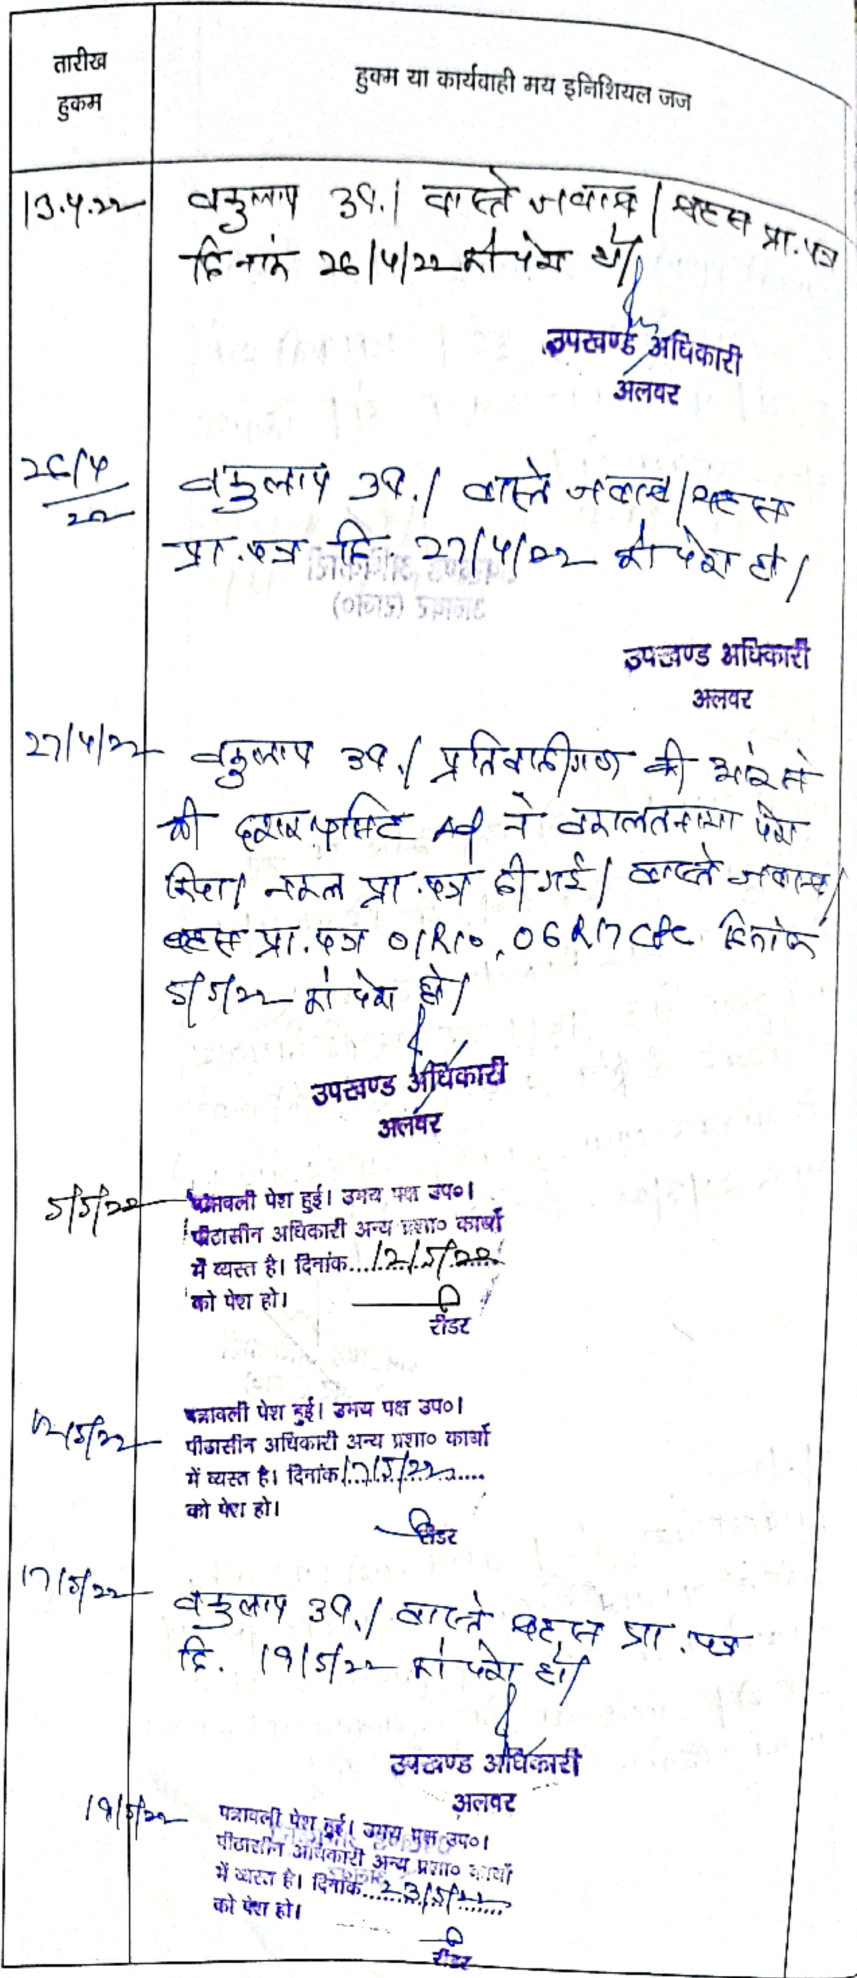 तारीख
हुकम
हुक्म या कार्यवाही मय इनिशियल जज
13.4.22
वकुलाय उप.। वास्ते जवाब / बहस प्रा.पत्र
दिनांक 26/4/22 को पेश हो।
उपखण्ड अधिकारी
अलवर
26/4
22
वकुलाय उप.। वास्ते जवाब / बहस
प्रा.पत्र दि. 27/4/22 को पेश हो।
उपखण्ड अधिकारी
अलवर
27/4/22
वकुलाय उप.। प्रतिवादीगण की ओर से
श्री Ad ने वकालतनामा पेश
किया। नकल प्रा.पत्र दी गई। वास्ते जवाब/
बहस प्रा.पत्र 01R10, 06R17 CPC दिनांक
5/5/22 को पेश हो।
उपखण्ड अधिकारी
अलवर
5/5/22
पत्रावली पेश हुई। उभय पक्ष उप०।
पीठासीन अधिकारी अन्य प्रशा० कार्यो
में व्यस्त है। दिनांक...12/5/22
को पेश हो।
रीडर
12/5/22
पत्रावली पेश हुई। उभय पक्ष उप०।
पीठासीन अधिकारी अन्य प्रशा० कार्यो
में व्यस्त है। दिनांक 17/5/22.....
को पेश हो।
रीडर
17/5/22
वकुलाय उप.। वास्ते बहस प्रा.पत्र
दि. 19/5/22 को पेश हो।
उपखण्ड अधिकारी
अलवर
19/5/22
पत्रावली पेश हुई। उभय पक्ष उप०।
पीठासीन अधिकारी अन्य प्रशा० कार्यो
में व्यस्त है। दिनांक...23/5/22
को पेश हो।
रीडर